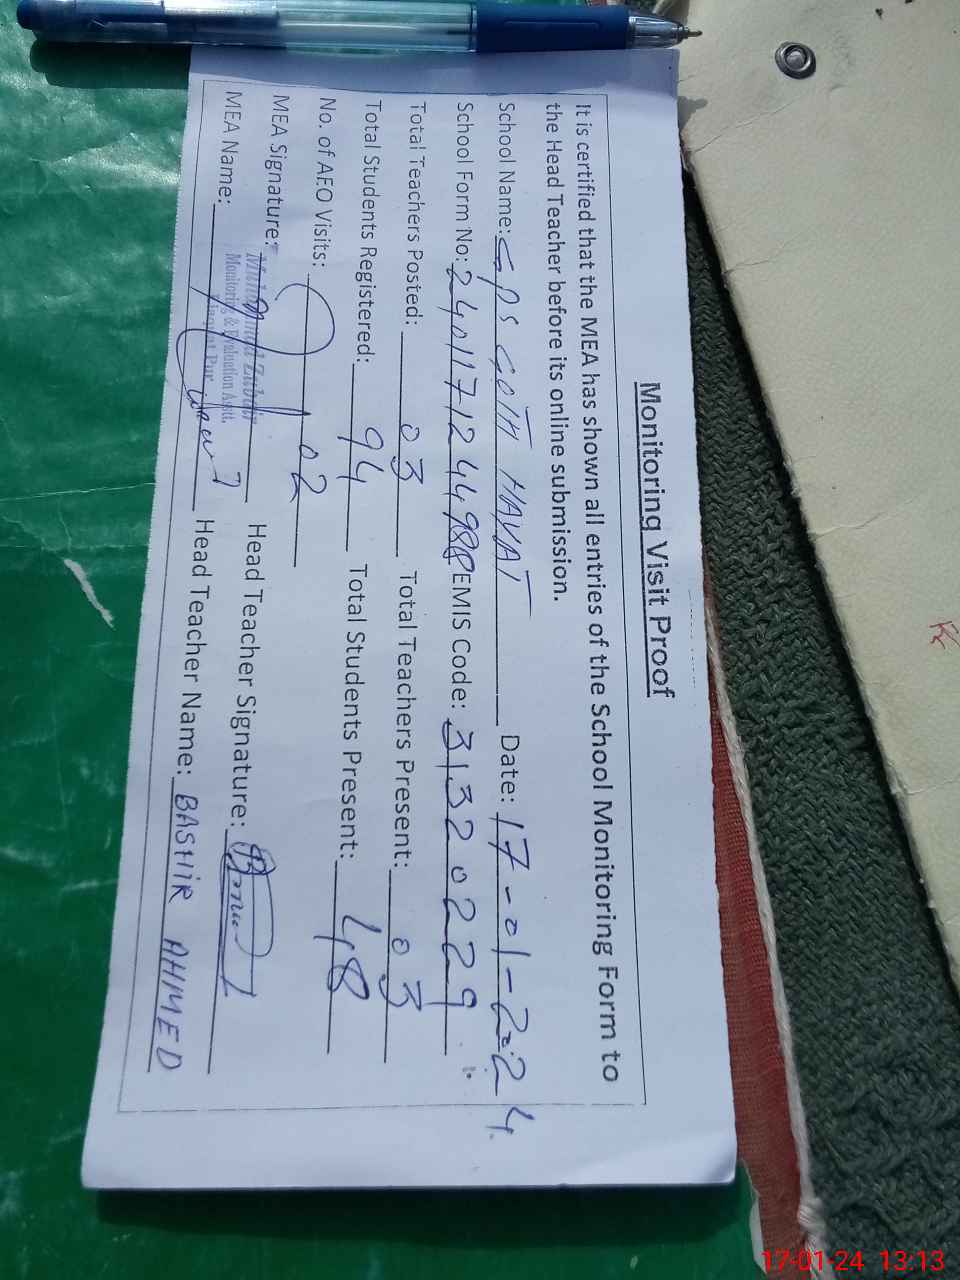 Monitoring Visit Proof
It is certified that the MEA has shown all entries of the School Monitoring Form to
the Head Teacher before its online submission.
School Name: GPS GOTH HAYAT Date: 17-01-2024
School Form No: EMIS Code: 31320229
Total Teachers Posted: 03 Total Teachers Present: 03
Total Students Registered: 94 Total Students Present: 48
No. of AEO Visits: 02
MEA Signature: Head Teacher Signature:
Muhammad Zubair
Monitoring & Evaluation Asstt.
MEA Name: Head Teacher Name: BASHIR AHMED
17-01-24 13:13